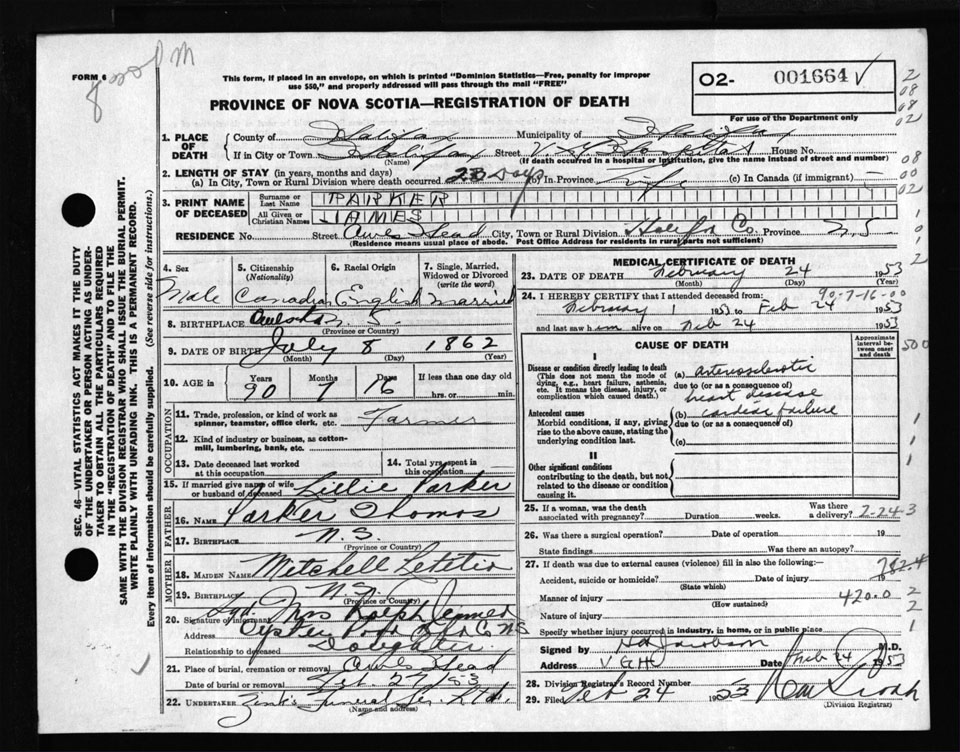 FORM 6
This form, if placed in an envelope, on which is printed "Dominion Statistics—Free, penalty for improper
use $50," and properly addressed will pass through the mail "FREE"
PROVINCE OF NOVA SCOTIA—REGISTRATION OF DEATH
O2- 001664 ✓
For use of the Department only
SEC. 46—VITAL STATISTICS ACT MAKES IT THE DUTY
OF THE UNDERTAKER OR PERSON ACTING AS UNDER-
TAKER TO OBTAIN ALL THE PARTICULARS REQUIRED
IN THE "REGISTRATION OF DEATH" AND TO FILE THE
SAME WITH THE DIVISION REGISTRAR WHO SHALL ISSUE THE BURIAL PERMIT.
WRITE PLAINLY WITH UNFADING INK. THIS IS A PERMANENT RECORD.
Every item of information should be carefully supplied. (See reverse side for instructions.)
1. PLACE OF DEATH
County of Halifax Municipality of Halifax
If in City or Town Halifax Street V.G. Hospital House No.
(Name) (If death occurred in a hospital or institution, give the name instead of street and number)
2. LENGTH OF STAY (in years, months and days)
(a) In City, Town or Rural Division where death occurred 23 Days (b) In Province Life (c) In Canada (if immigrant)
3. PRINT NAME OF DECEASED
Surname or Last Name PARKER
All Given or Christian Names JAMES
RESIDENCE No. Street Owls Head City, Town or Rural Division Halifax Co. Province N.S.
(Residence means usual place of abode. Post Office Address for residents in rural parts not sufficient)
4. Sex 5. Citizenship (Nationality) 6. Racial Origin 7. Single, Married, Widowed or Divorced (write the word)
Male Canadian English Married
8. BIRTHPLACE N.S.
(Province or Country)
9. DATE OF BIRTH July 8 1862
(Month) (Day) (Year)
10. AGE in Years Months Days If less than one day old
90 7 16 hrs. or min.
OCCUPATION
11. Trade, profession, or kind of work as
spinner, teamster, office clerk, etc. Farmer
12. Kind of industry or business, as cotton-
mill, lumbering, bank, etc.
13. Date deceased last worked
at this occupation
14. Total yrs spent in
this occupation
15. If married give name of wife
or husband of deceased Lillie Parker
FATHER
16. NAME Parker Thomas
17. BIRTHPLACE N.S.
(Province or Country)
MOTHER
18. MAIDEN NAME Mitchell Letitia
19. BIRTHPLACE N.S.
(Province or Country)
20. Signature of informant Sgd. Mrs Ralph
Address Oyster Pond Co N.S
Relationship to deceased Daughter
21. Place of burial, cremation or removal Owls Head
Date of burial or removal Feb. 27/53
22. UNDERTAKER Zink's Funeral Ser. Ltd.
(Name and address)
MEDICAL CERTIFICATE OF DEATH
23. DATE OF DEATH February 24 1953
(Month) (Day) (Year)
90-7-16-00
24. I HEREBY CERTIFY that I attended deceased from:
February 1 1953 to Feb 24 1953
and last saw him alive on Feb 24 1953
CAUSE OF DEATH
Approximate interval between onset and death
I
Disease or condition directly leading to death
(This does not mean the mode of
dying, e.g., heart failure, asthenia,
etc. It means the disease, injury, or
complication which caused death.)
(a) arteriosclerotic
due to (or as a consequence of)
heart disease
Antecedent causes
Morbid conditions, if any, giving
rise to the above cause, stating the
underlying condition last.
(b) cardiac failure
due to (or as a consequence of)
(c)
II
Other significant conditions
contributing to the death, but not
related to the disease or condition
causing it.
25. If a woman, was the death
associated with pregnancy? Duration weeks. Was there
a delivery? 2-24-3
26. Was there a surgical operation? Date of operation 19
State findings Was there an autopsy?
27. If death was due to external causes (violence) fill in also the following:—
Accident, suicide or homicide? Date of injury
(State which)
Manner of injury 420.0
(How sustained)
Nature of injury
Specify whether injury occurred in industry, in home, or in public place
Signed by Jacobson M.D.
Address V G H Date Feb 24 1953
28. Division Registrar's Record Number
29. Filed Feb 24 1953
(Division Registrar)